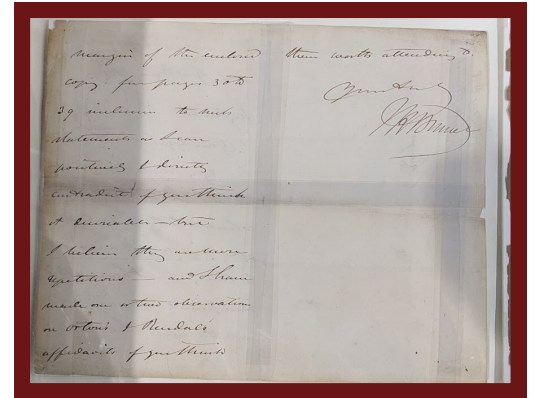 margin of the enclosed
copy from pages 30 to
39 inclusive to such
statements as I can
positively & directly
contradict if you think
it desirable – but
I believe they are mere
repetitions – and I have
made one or two observations
on Orton's & Rendals
affidavits if you think
them worth attending to.
Yours truly